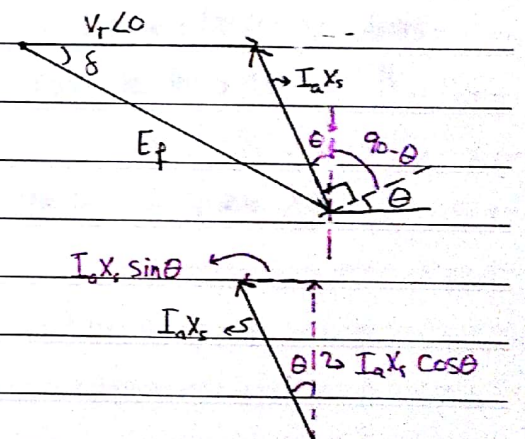 V_T∠0
δ
I_a X_s
E_f
θ
90-θ
θ
I_a X_s sinθ
I_a X_s
θ
I_a X_s cosθ